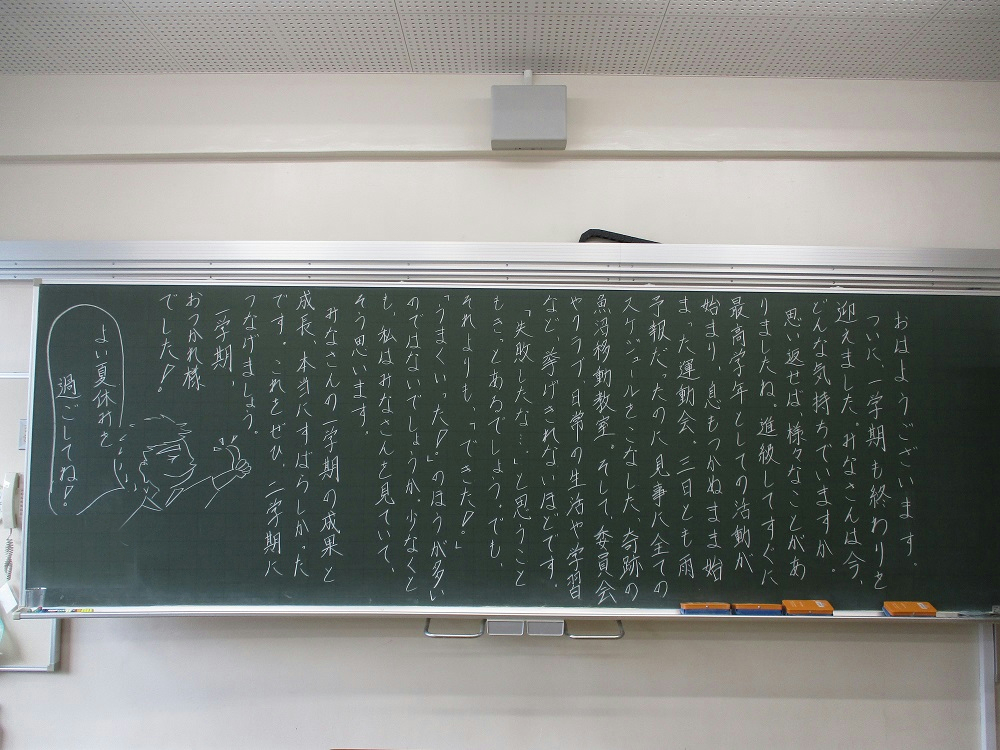 おはようございます。
ついに、一学期も終わりを
迎えました。みなさんは今、
どんな気持ちでいますか。
思い返せば様々なことがあ
りましたね。進級してすぐに
最高学年としての活動が
始まり、息もつかぬまま始
まった運動会、三日とも雨
予報だったのに見事に全ての
スケジュールをこなした、奇跡の
魚沼移動教室。そして、委員会
やクラブ、日常の生活や学習
など、挙げきれないほどです。
「失敗したな…」と思うこと
もきっとあるでしょう。でも、
それよりも、「できた!」
「うまくいった!」のほうが多い
のではないでしょうか。少なくと
も、私はみなさんを見ていて、
そう思います。
みなさんの一学期の成果と
成長、本当にすばらしかった
です。これをぜひ、二学期に
つなげましょう。
一学期、
おつかれ様
でした!!
よい夏休みを
過ごしてね!